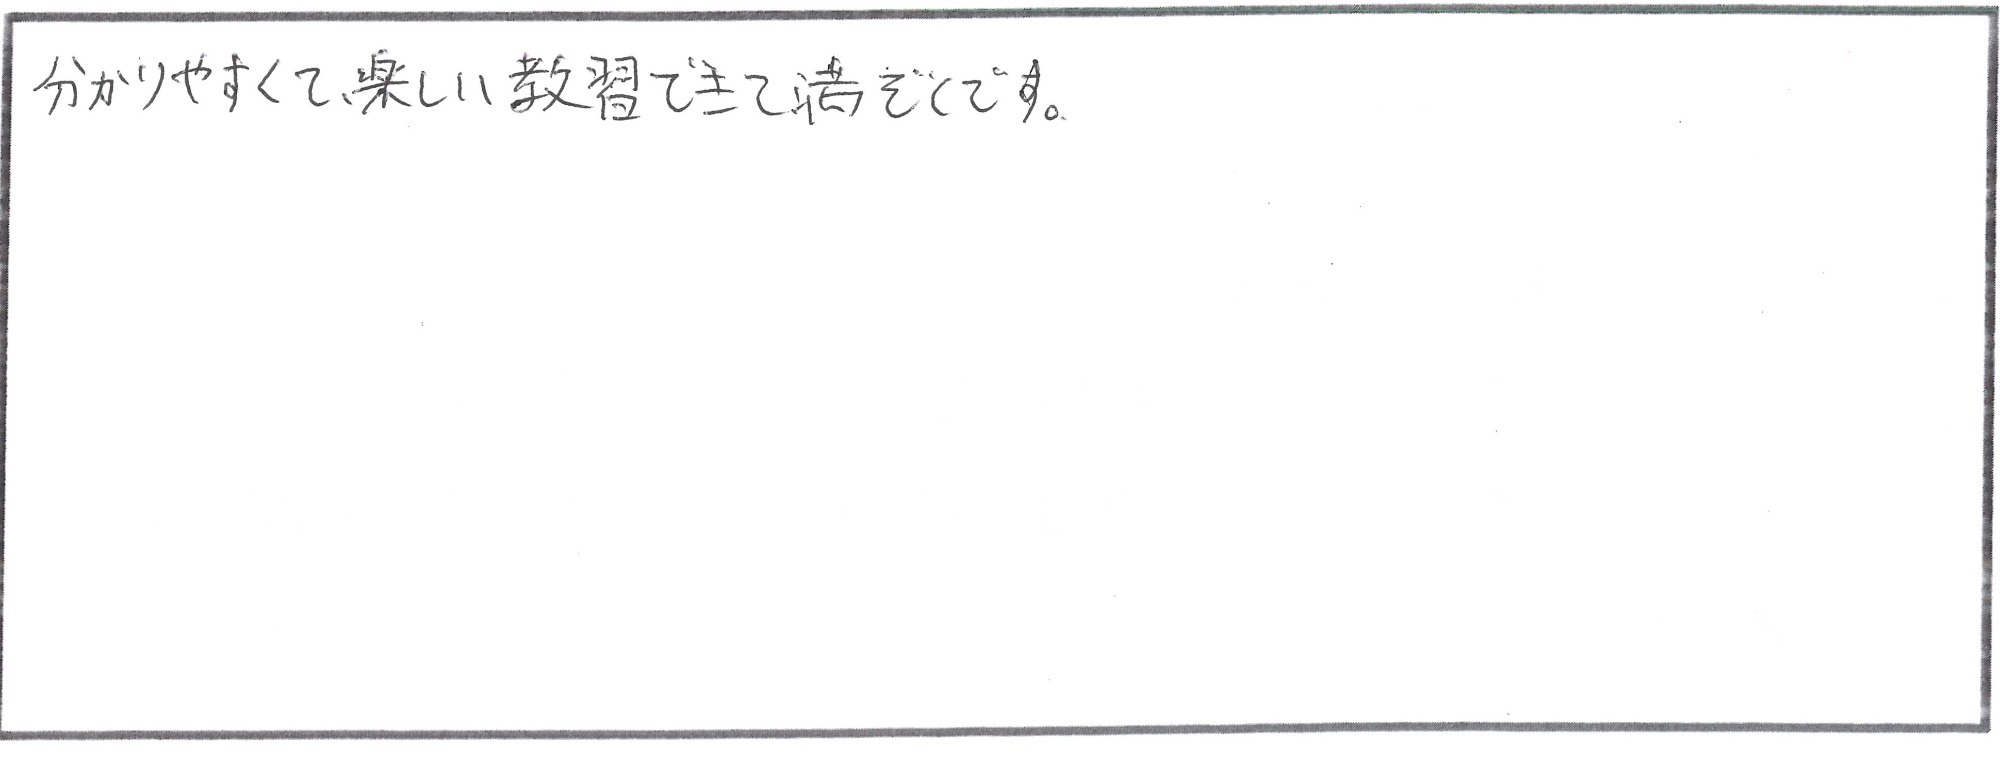 分かりやすくて、楽しい教習できて満ぞくです。